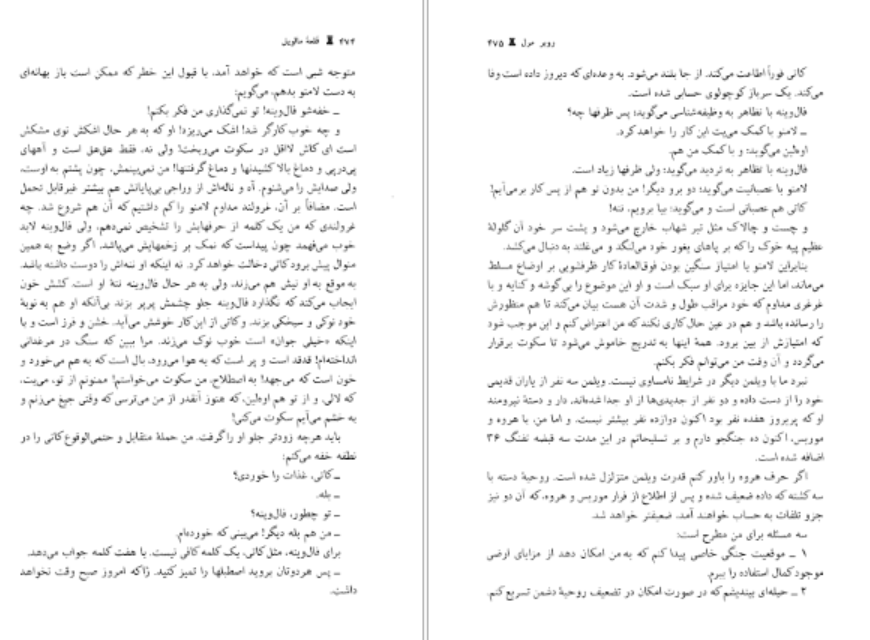 ۴۷۴ قلعهٔ مالویل
متوجه شبی است که خواهد آمد. با قبول این خطر که ممکن است باز بهانه‌ای
به دست لامنو بدهم، می‌گویم:
ـ خفه‌شو فال‌وینه! تو نمی‌گذاری من فکر بکنم!
و چه خوب کارگر شد! اشک می‌ریزد! او که به هر حال اشکش توی مشکش
است ای کاش لااقل در سکوت می‌ریخت! ولی نه، فقط هق‌هق است و آههای
پی‌درپی و دماغ بالا کشیدنها و دماغ گرفتنها! من نمی‌بینمش، چون پشتم به اوست،
ولی صدایش را می‌شنوم. آه و ناله‌اش از وراجی بی‌پایانش هم بیشتر غیرقابل تحمل
است. مضافاً بر آن، غرولند مداوم لامنو را کم داشتیم که آن هم شروع شد. چه
غرولندی که من یک کلمه از حرفهایش را تشخیص نمی‌دهم، ولی فال‌وینه لابد
خوب می‌فهمد چون پیداست که نمک بر زخمهایش می‌پاشد. اگر وضع به همین
منوال پیش برود کاتی دخالت خواهد کرد. نه اینکه او ننه‌اش را دوست داشته باشد.
به موقع به او نیش هم می‌زند. ولی به هر حال فال‌وینه ننهٔ او است. کشش خون
ایجاب می‌کند که نگذارد فال‌وینه جلو چشمش پرپر بزند بی‌آنکه او هم به نوبهٔ
خود نوکی و سیخکی بزند. و کاتی از این کار خوشش می‌آید. خشن و فرز است و با
اینکه «خیلی جوان» است خوب نوک می‌زند. مرا ببین که سنگ در مرغدانی
انداخته‌ام! قدقد است و پر است که به هوا می‌رود، بال است که به هم می‌خورد و
خون است که می‌جهد! به اصطلاح، من سکوت می‌خواستم! ممنونم از تو، می‌یت،
که لالی، و از تو هم اوه‌لین، که هنوز آنقدر از من می‌ترسی که وقتی جیغ می‌زنم و
به خشم می‌آیم سکوت می‌کنی!
باید هرچه زودتر جلو او را گرفت. من حملهٔ متقابل و حتمی‌الوقوع کاتی را در
نطفه خفه می‌کنم:
ـ کاتی، غذات را خوردی؟
ـ بله.
ـ تو چطور، فال‌وینه؟
ـ من هم بله دیگر! می‌بینی که خورده‌ام.
برای فال‌وینه، مثل کاتی، یک کلمه کافی نیست. با هفت کلمه جواب می‌دهد.
ـ پس هردوتان بروید اصطبلها را تمیز کنید. ژاکه امروز صبح وقت نخواهد
داشت.
روبر مرل ۴۷۵
کاتی فوراً اطاعت می‌کند. از جا بلند می‌شود. به وعده‌ای که دیروز داده است وفا
می‌کند. یک سرباز کوچولوی حسابی شده است.
فال‌وینه با تظاهر به وظیفه‌شناسی می‌گوید: پس ظرفها چه؟
ـ لامنو با کمک می‌یت این کار را خواهد کرد.
اوه‌لین می‌گوید: و با کمک من هم.
فال‌وینه با تظاهر به تردید می‌گوید: ولی ظرفها زیاد است.
لامنو با عصبانیت می‌گوید: دِ برو دیگر! من بدون تو هم از پس کار برمی‌آیم!
کاتی هم عصبانی است و می‌گوید: بیا برویم، ننه!
و چست و چالاک مثل تیر شهاب خارج می‌شود و پشت سر خود آن گلولهٔ
عظیم پیه خوک را که بر پاهای بغور خود می‌لنگد و می‌غلتد به دنبال می‌کشد.
بنابراین لامنو با امتیاز سنگین بودن فوق‌العادهٔ کار ظرفشویی بر اوضاع مسلط
می‌ماند. اما این جایزه برای او سبک است و او این موضوع را بی‌گوشه و کنایه و با
غرغری مداوم که خود مراقب طول و شدت آن هست بیان می‌کند تا هم منظورش
را رسانده باشد و هم در عین حال کاری نکند که من اعتراض کنم و این موجب شود
که امتیازش از بین برود. همهٔ اینها به تدریج خاموش می‌شود تا سکوت برقرار
می‌گردد و آن وقت من می‌توانم فکر بکنم.
نبرد ما با ویلمن دیگر در شرایط نامساوی نیست. ویلمن سه نفر از یاران قدیمی
خود را از دست داده و دو نفر از جدیدی‌ها از او جدا شده‌اند. دار و دستهٔ نیرومند
او که پریروز هفده نفر بود اکنون دوازده نفر بیشتر نیست. و اما من، با هروه و
موریس، اکنون ده جنگجو دارم و بر تسلیحاتم در این مدت سه قبضه تفنگ ۳۶
اضافه شده است.
اگر حرف هروه را باور کنم قدرت ویلمن متزلزل شده است. روحیهٔ دسته با
سه کشته که داده ضعیف شده و پس از اطلاع از فرار موریس و هروه، که آن دو نیز
جزو تلفات به حساب خواهند آمد. ضعیفتر خواهد شد.
سه مسئله برای من مطرح است:
۱ ـ موقعیت جنگی خاصی پیدا کنم که به من امکان دهد از مزایای ارضی
موجود کمال استفاده را ببرم.
۲ ـ حیله‌ای بیندیشم که در صورت امکان در تضعیف روحیهٔ دشمن تسریع کنم.